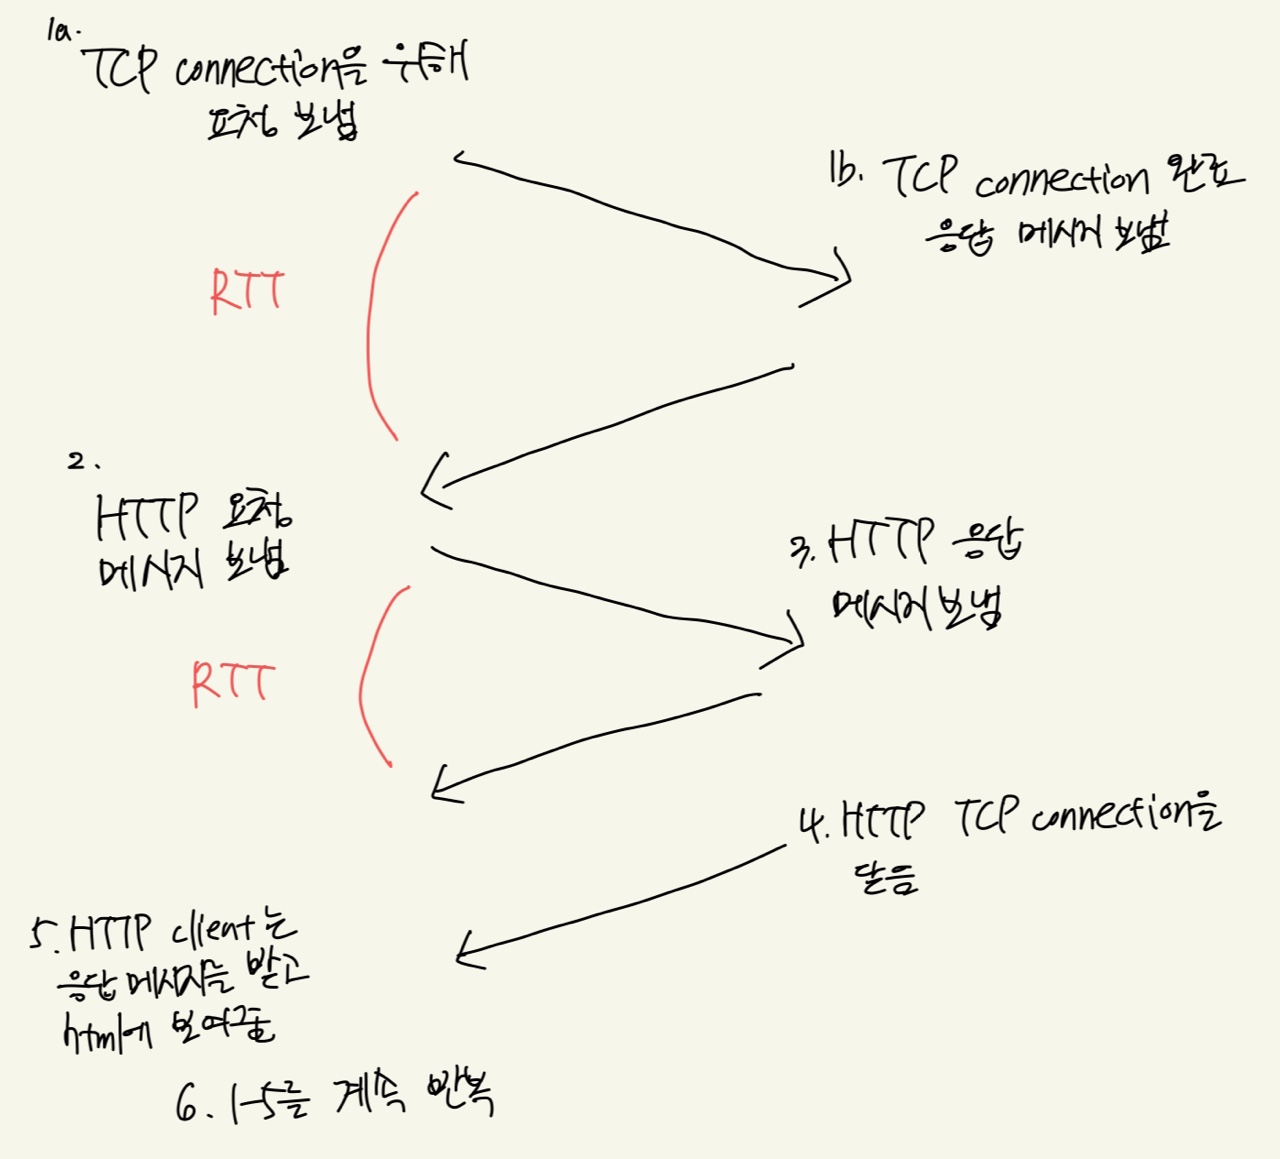 1a.
TCP connection을 위해
요청 보냄
1b. TCP connection 완료
응답 메시지 보냄
RTT
2.
HTTP 요청
메시지 보냄
3. HTTP 응답
메시지 보냄
RTT
4. HTTP TCP connection을
닫음
5. HTTP client는
응답 메시지를 받고
html에 보여줌
6. 1-5를 계속 반복